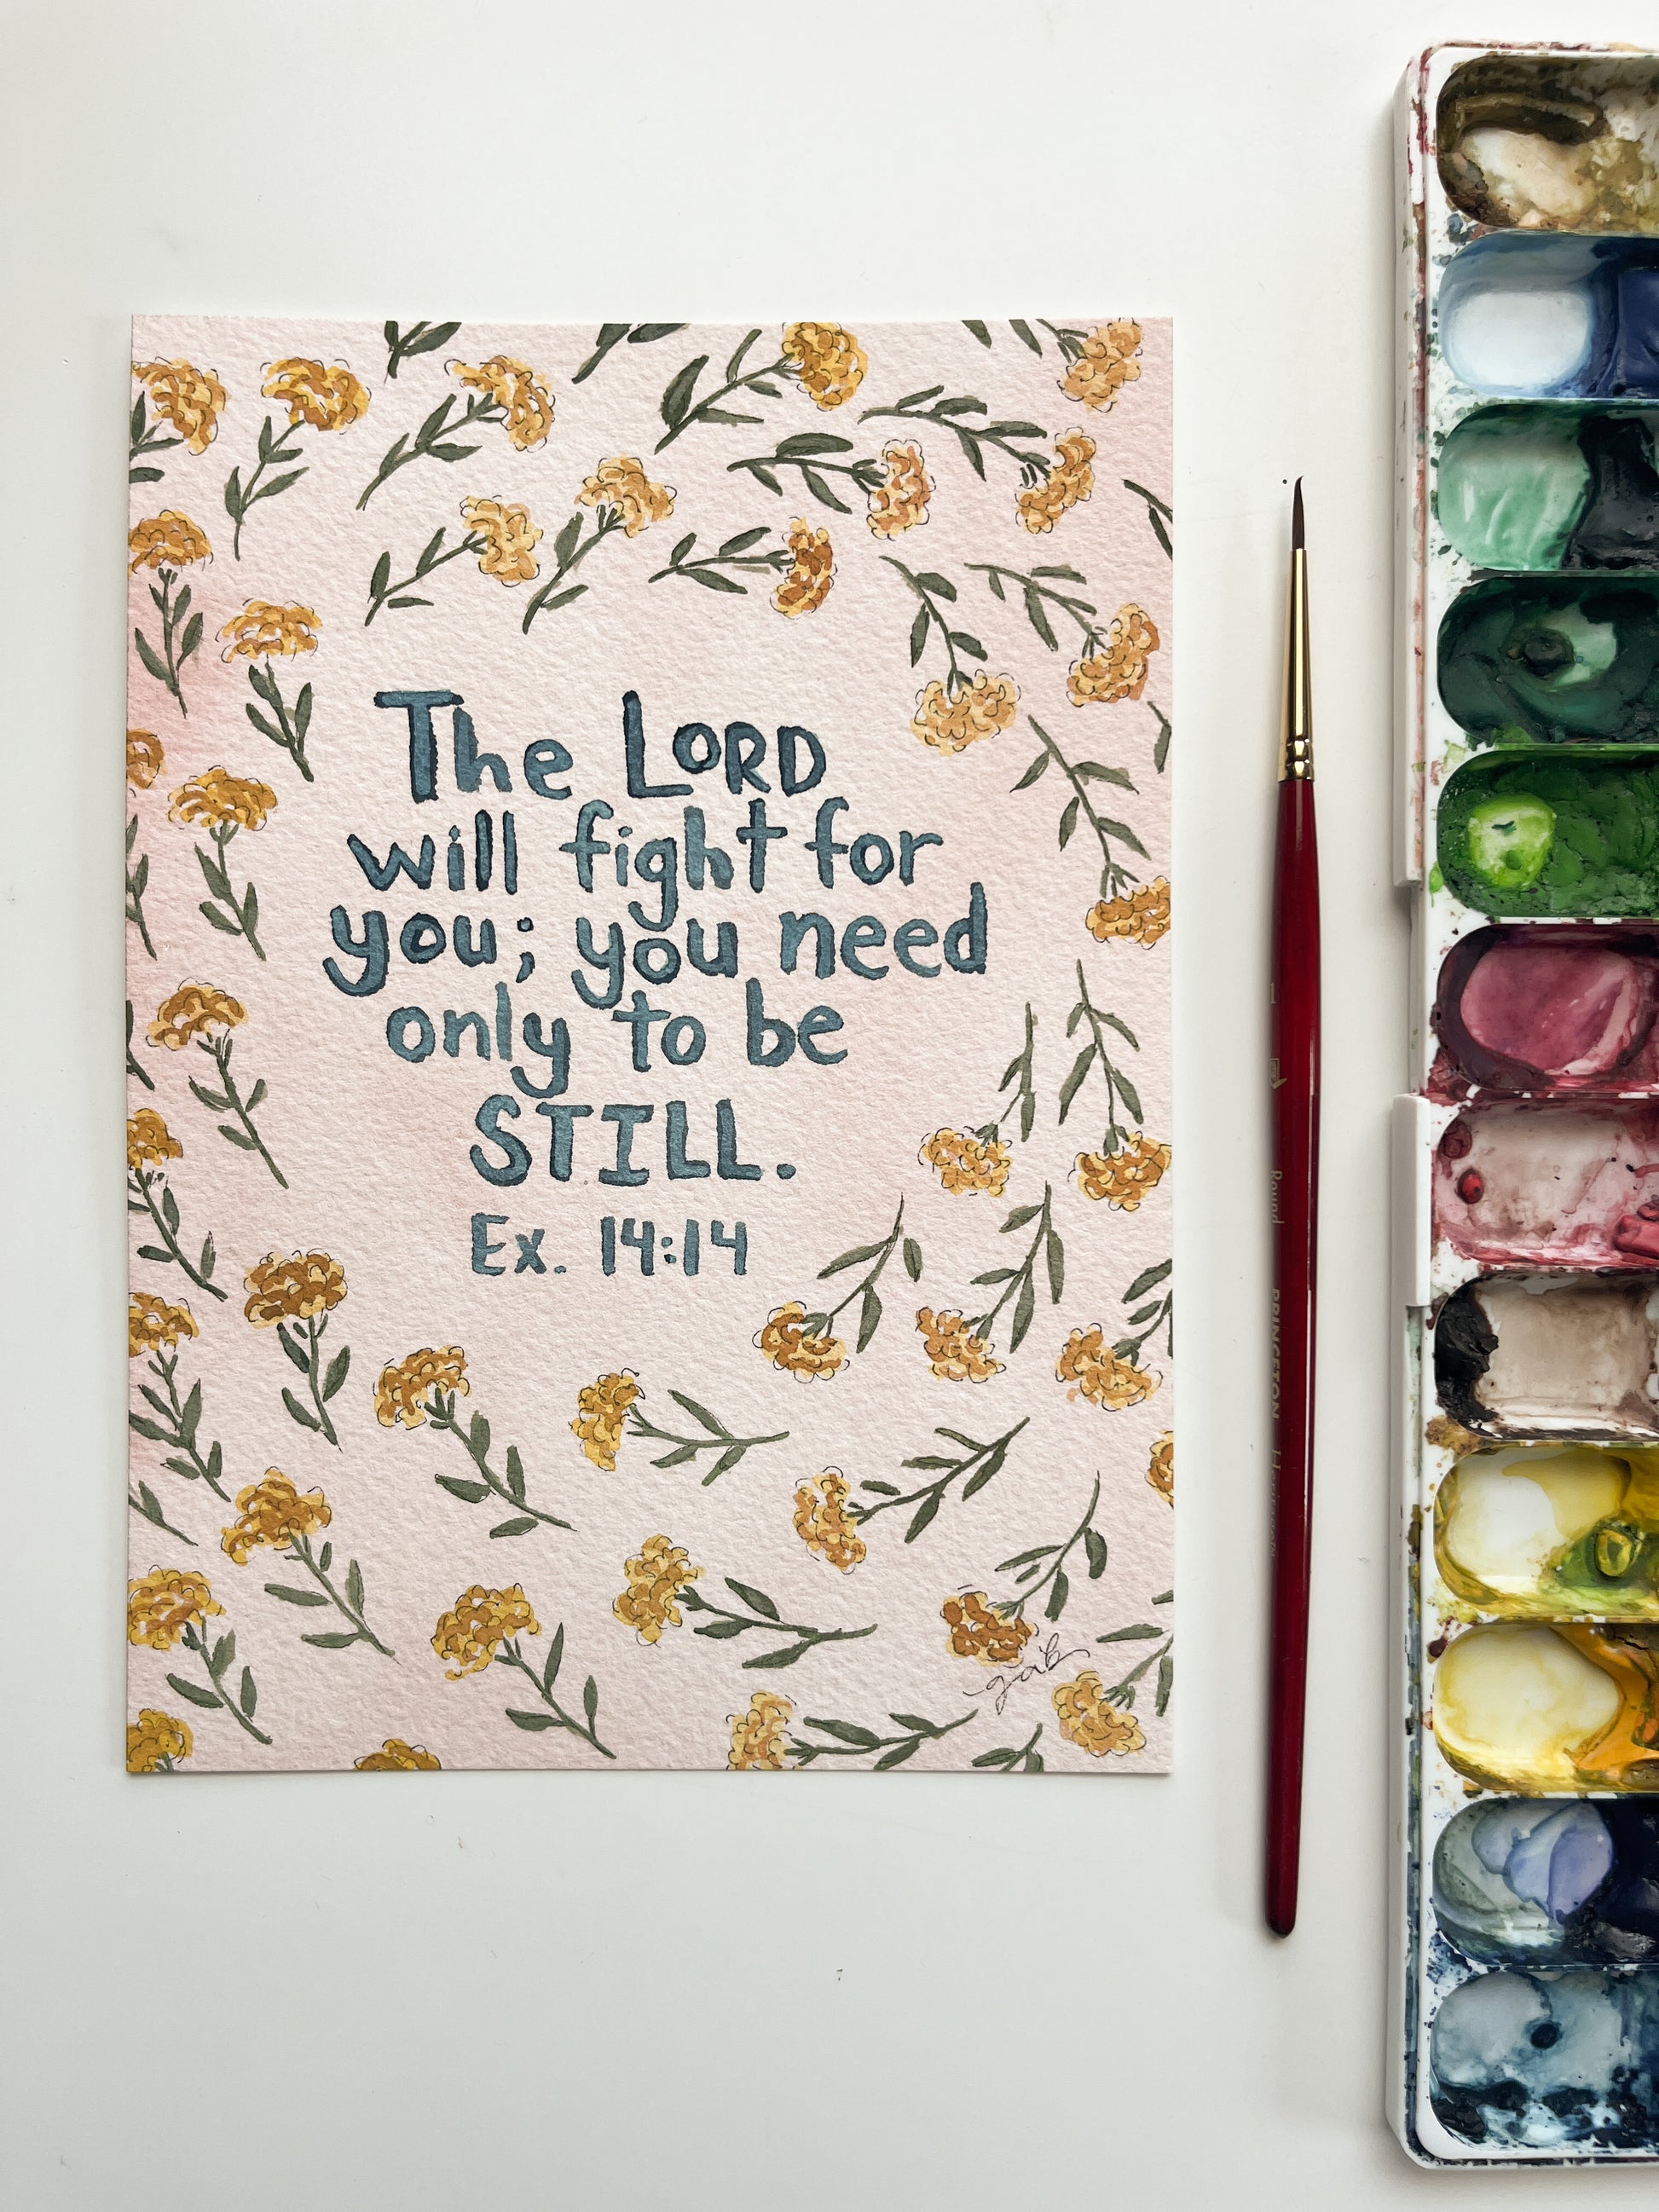 The LORD
will fight for
you; you need
only to be
STILL.
Ex. 14:14
Round
PRINCETON